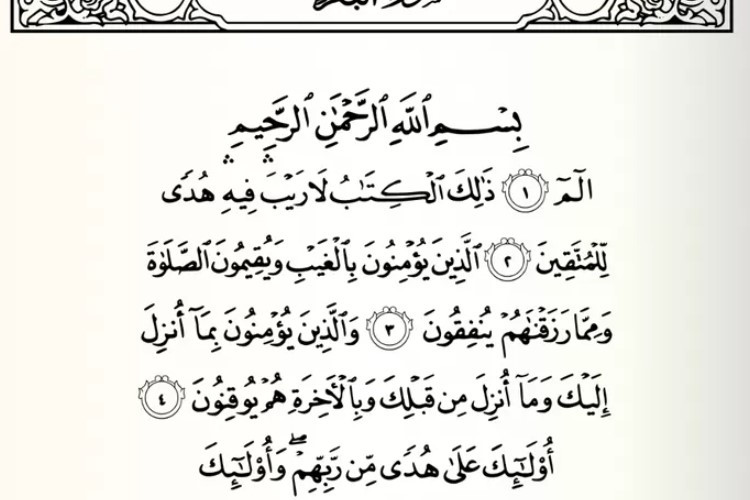 سورة البقرة
بِسْمِ ٱللَّهِ ٱلرَّحْمَٰنِ ٱلرَّحِيمِ
الٓمٓ ١ ذَٰلِكَ ٱلْكِتَٰبُ لَا رَيْبَ ۛ فِيهِ ۛ هُدًى
لِّلْمُتَّقِينَ ٢ ٱلَّذِينَ يُؤْمِنُونَ بِٱلْغَيْبِ وَيُقِيمُونَ ٱلصَّلَوٰةَ
وَمِمَّا رَزَقْنَٰهُمْ يُنفِقُونَ ٣ وَٱلَّذِينَ يُؤْمِنُونَ بِمَآ أُنزِلَ
إِلَيْكَ وَمَآ أُنزِلَ مِن قَبْلِكَ وَبِٱلْءَاخِرَةِ هُمْ يُوقِنُونَ ٤
أُو۟لَٰٓئِكَ عَلَىٰ هُدًى مِّن رَّبِّهِمْ ۖ وَأُو۟لَٰٓئِكَ